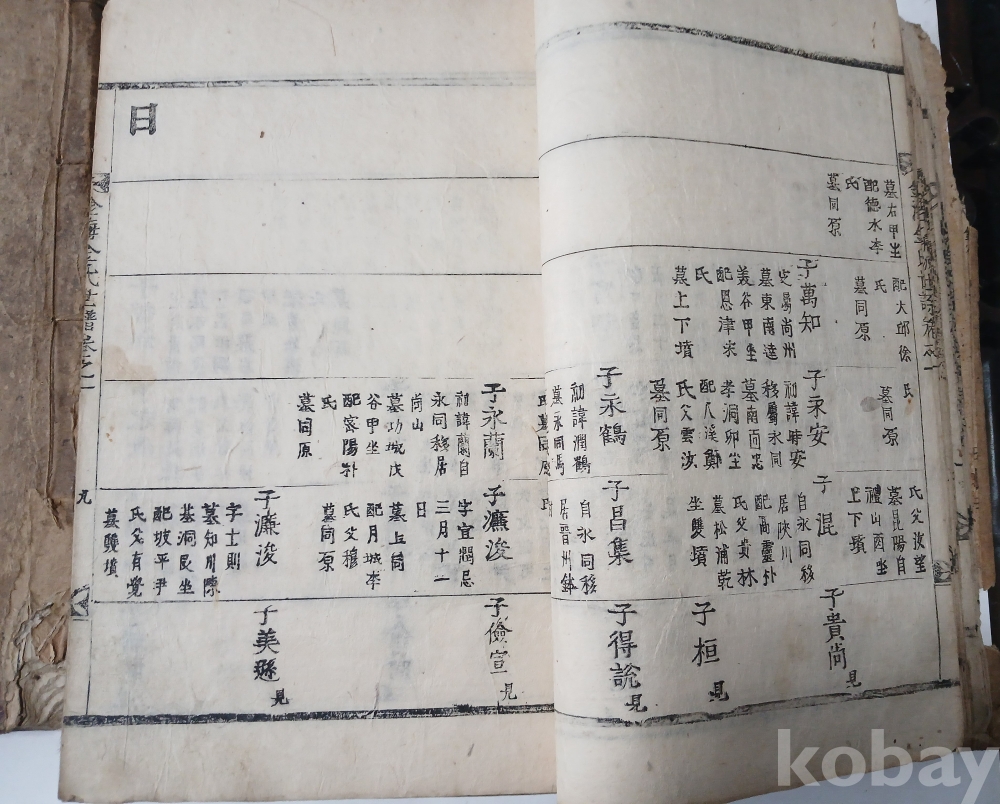 墓右甲坐
配德水李
氏
墓同原
配大邱徐
氏
墓同原
子萬知
墓東南達
義谷甲坐
配恩津宋
氏
墓上下墳
氏
墓同原
子永安
初諱時安
移居永同
墓南面忠
孝洞卯坐
配八溪鄭
氏父雲汝
墓同原
子永鶴
初諱潤鶴
氏墓同原
子永蘭
初諱蘭自
永同移居
尙山
墓功城戊
谷甲坐
配密陽朴
氏
墓同原
墓昆陽自
禮山酉坐
上下墳
子混
自永同移
居陜川
配高靈朴
氏父貴林
墓松浦乾
坐雙墳
子昌集
自永同移
居晉州鉢
子濂浚
字宜潤忌
三月十一
日
墓上同
配月城李
氏父穆
墓同原
子濂浚
字士則
墓知川陳
基洞艮坐
配坡平尹
氏父有覺
墓雙墳
子貴尙 見
子桓 見
子得說 見
子儉宣 見
子美 見
日
金海金氏世譜卷之一
九
kobay